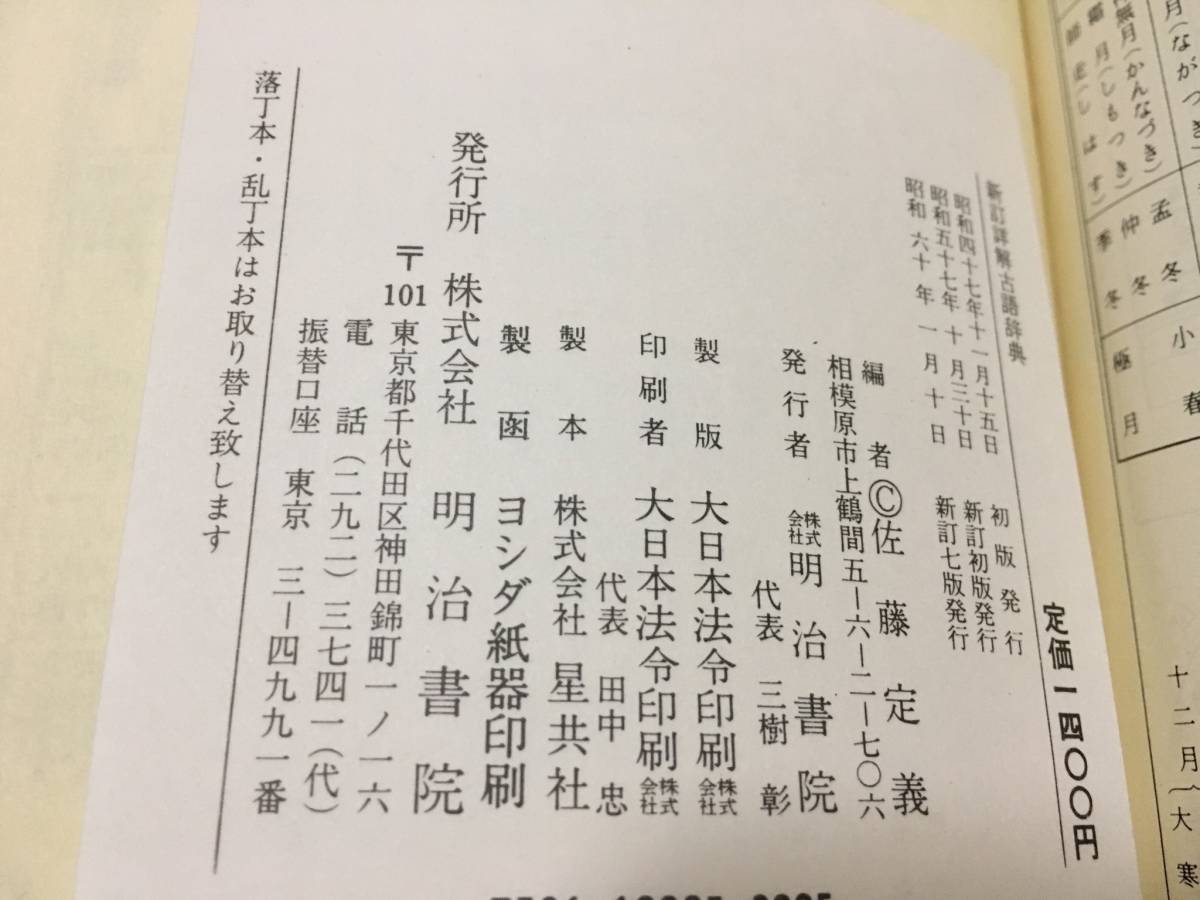 月(ながつき)
無月(かんなづき)
霜月(しもつき)
師走(しはす)
孟冬
仲冬
季冬
小春
極月
十二月(大寒
定価一四〇〇円
新訂詳解古語辞典
昭和四十七年十一月十五日 初版発行
昭和五十七年十月三十日 新訂初版発行
昭和六十年一月十日 新訂七版発行
編者 Ⓒ佐藤定義
相模原市上鶴間五―六―二―七〇六
発行者 株式会社 明治書院
代表 三樹彰
製版 大日本法令印刷株式会社
印刷者 大日本法令印刷株式会社
代表 田中忠
製本 株式会社 星共社
製函 ヨシダ紙器印刷
発行所 株式会社 明治書院
〒101 東京都千代田区神田錦町一ノ一六
電話(二九二)三七四一(代)
振替口座 東京 三―四九九一番
落丁本・乱丁本はお取り替え致します